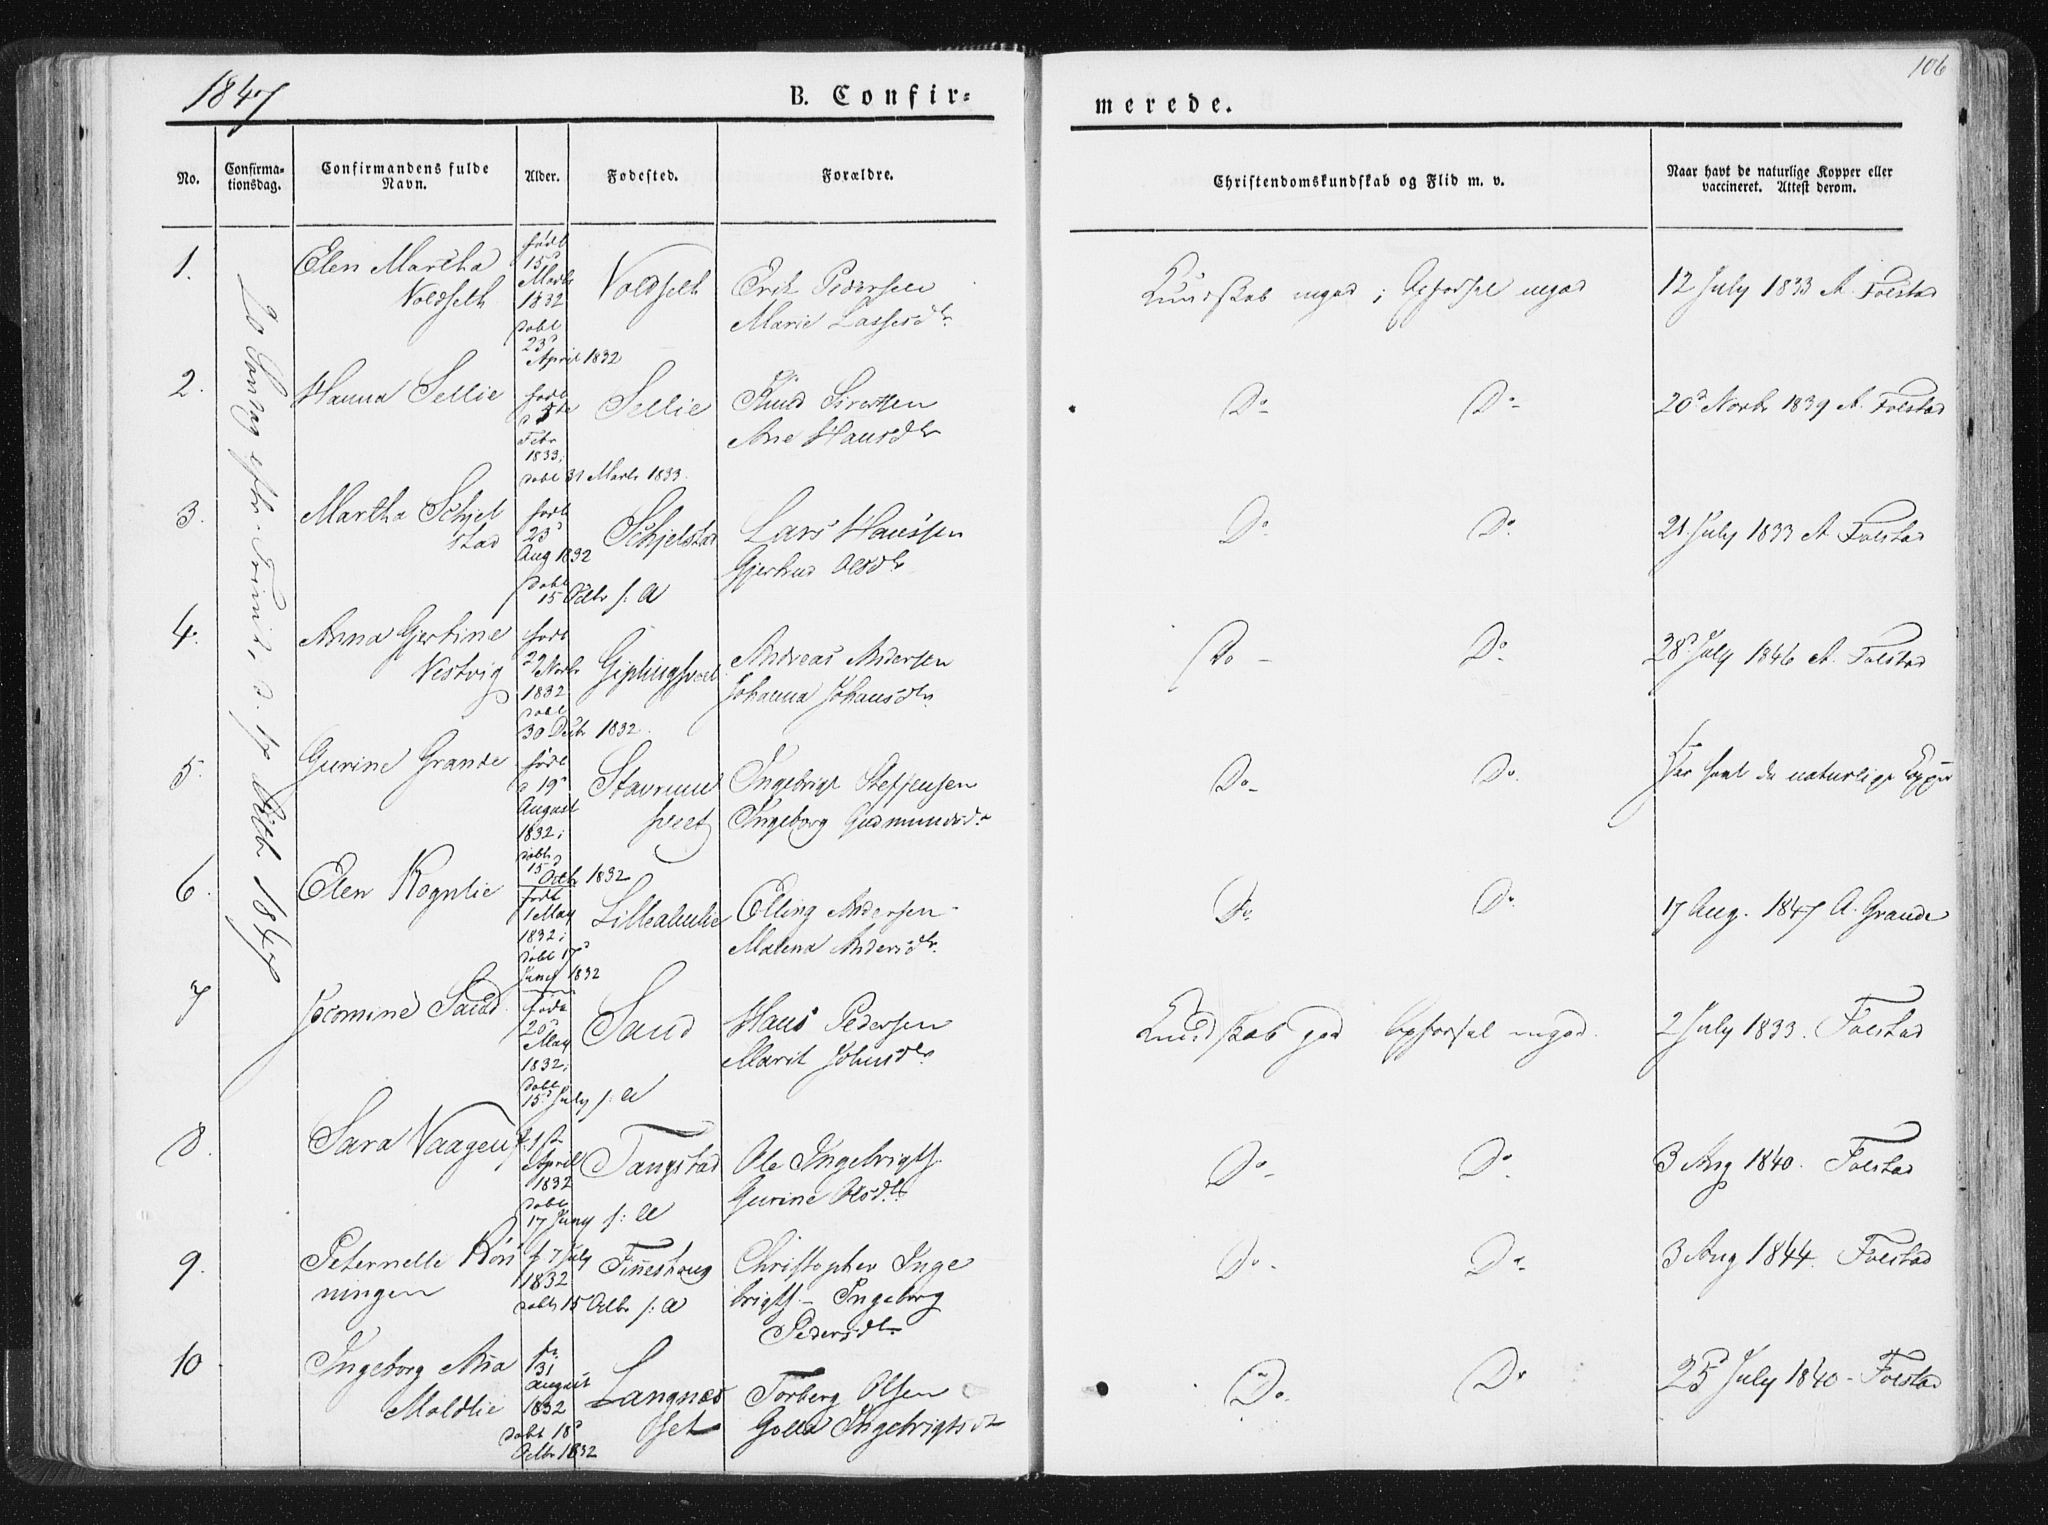 1847
B. Confir=
merede.
106
No.
Confirma-
tionsdag.
Confirmandens fulde
Navn.
Alder.
Fødested.
Forældre.
Christendomskundskab og Flid m. v.
Naar havt de naturlige Kopper eller
vaccineret. Attest derom.
20 Søndag efter Trinit. d. 17 Octbr 1847
1.
Elen Martha
Voldseth
født
15d
Marts
1832
døbt
23d
April 1832
Voldseth
Erik Pedersen
Marie Lassesdtr
Kundskab mgod; Opførsel mgod
12 July 1833 A. Folstad
2.
Hanna Sellie
født
Febr
1833;
døbt 31 Marts 1833.
Sellie
Knud Sivertsen
Ane Hansdtr
Do
Do
20d Novbr 1839 A. Folstad
3.
Martha Schjel
stad
født
23d
Aug 1832
døbt
15 Octbr s: A
Schjelstad
Lars Hanssen
Gjertrud Olsdtr
Do
Do
21 July 1833 A Folstad
4.
Anna Gjertine
Vestvig
født
Novbr
1832
døbt
30 Decbr 1832.
Andreas Andersen
Johanna Johansdtr
Do
Do
28d July 1846 A. Folstad
5.
Gurine Grande
født
d 19d
August
1832;
døbt
15d Octbr 1832
Ingebrigt Steffensen
Ingeborg Gudmundsdr
Do
Do
Har havt de naturlige Kopper
6.
Elen Rognlie
født
1 May
1832;
døbt 17d
Juny 1832
Elling Andersen
Malena Andersdtr
Do
Do
17 Aug. 1847 A. Grande
7
Jocomine Sand
født
20d
May
1832;
døbt
15d July s: A
Sand
Hans Pedersen
Marit Johnsdtr
Kundskab god Opførsel mgod.
2 July 1833. Folstad
8.
Sara Vaagen
f. 1st
April
1832
døbt
17 Juny s: A
Tangstad
Ole Ingebrigts.
Gurine Olsdtr
Do
Do
3 Aug 1840. Folstad
9.
Peternelle Røn
ningen
f. 7 July
1832
døbt 15 Octbr s: A
Finneshaug
Christopher Inge
brigts. - Ingeborg
Pedersdtr
Do
Do
3 Aug 1844. Folstad
10
Ingeborg Ana
Moldlie
fø.
31
august
1832
døbt 18d
Octbr 1832
Langnes
set
Torberg Olsen
Golla Ingebrigtsdt
Do
Do
25d July 1840 - Folstad